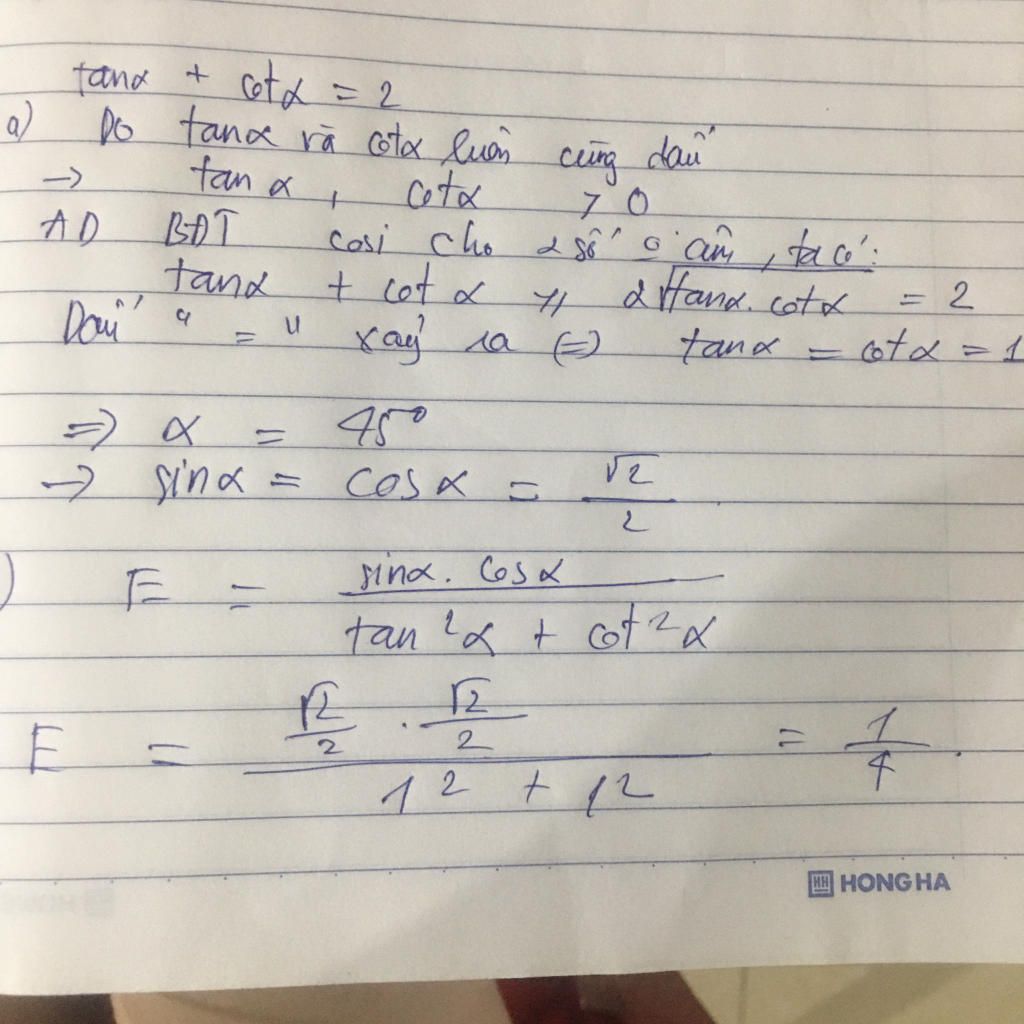 tanα + cotα = 2
a) Do tanα và cotα luôn cùng dấu
→ tan α, cotα > 0
AD BĐT cosi cho 2 số o âm, ta có:
tanα + cot α ≥ 2√tanα.cotα = 2
Dấu "=" xảy ra (=) tanα = cotα = 1
=> α = 45°
→ sinα = cosα = √2/2
) E = sinα. cosα / tan²α + cot²α
E = √2/2 . √2/2 / 1² + 1² = 1/4.
HH HONG HA